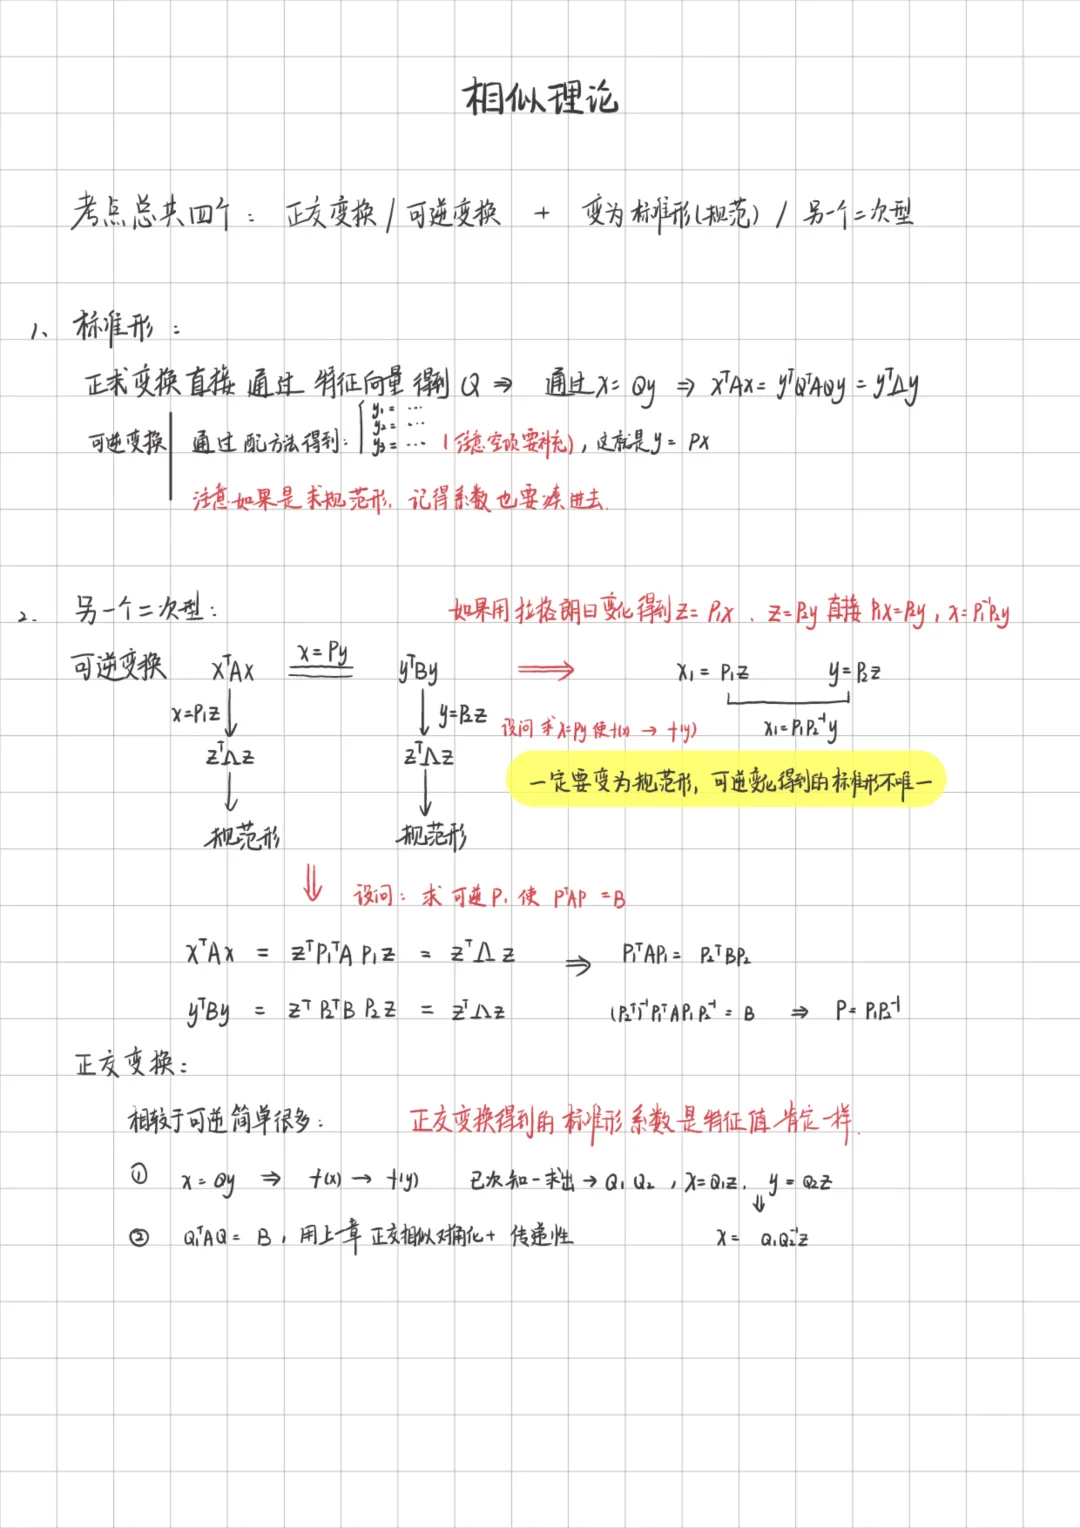 相似理论
考点总共四个：正交变换 / 可逆变换 + 变为标准形(规范) / 另一个二次型
1、标准形：
正求变换直接通过特征向量得到Q ⇒ 通过x=Qy ⇒ xᵀAx=yᵀQᵀAQy=yᵀΛy
可逆变换 通过配方法得到: { y₁= … y₂= … y₃= … (注意空项要补充), 这就是y=Px
注意如果是求规范形, 记得系数也要凑进去.
2. 另一个二次型： 如果用拉格朗日变化得到z=P₁x. z=P₂y 直接P₁x=P₂y, x=P₁⁻¹P₂y
可逆变换 xᵀAx x=Py yᵀBy ⇒ x₁=P₁z y=P₂z
x=P₁z ↓ ↓ y=P₂z 设问 求x=Py使f(x) → f(y) x₁=P₁P₂⁻¹y
zᵀΛz zᵀΛz
一定要变为规范形, 可逆变化得到的标准形不唯一
↓ ↓
规范形 规范形
⇓ 设问：求可逆P, 使 PᵀAP = B
xᵀAx = zᵀP₁ᵀAP₁z = zᵀΛz ⇒ P₁ᵀAP₁ = P₂ᵀBP₂
yᵀBy = zᵀP₂ᵀBP₂z = zᵀΛz (P₂ᵀ)⁻¹P₁ᵀAP₁P₂⁻¹ = B ⇒ P=P₁P₂⁻¹
正交变换：
相较于可逆简单很多： 正交变换得到的标准形系数是特征值肯定一样.
① x=Qy ⇒ f(x) → f(y) 已次知一求出 → Q₁ Q₂, x=Q₁z. y=Q₂z
⇓
② Q₁ᵀAQ = B, 用上一章正交相似对角化+传递性 x= Q₁Q₂⁻¹z